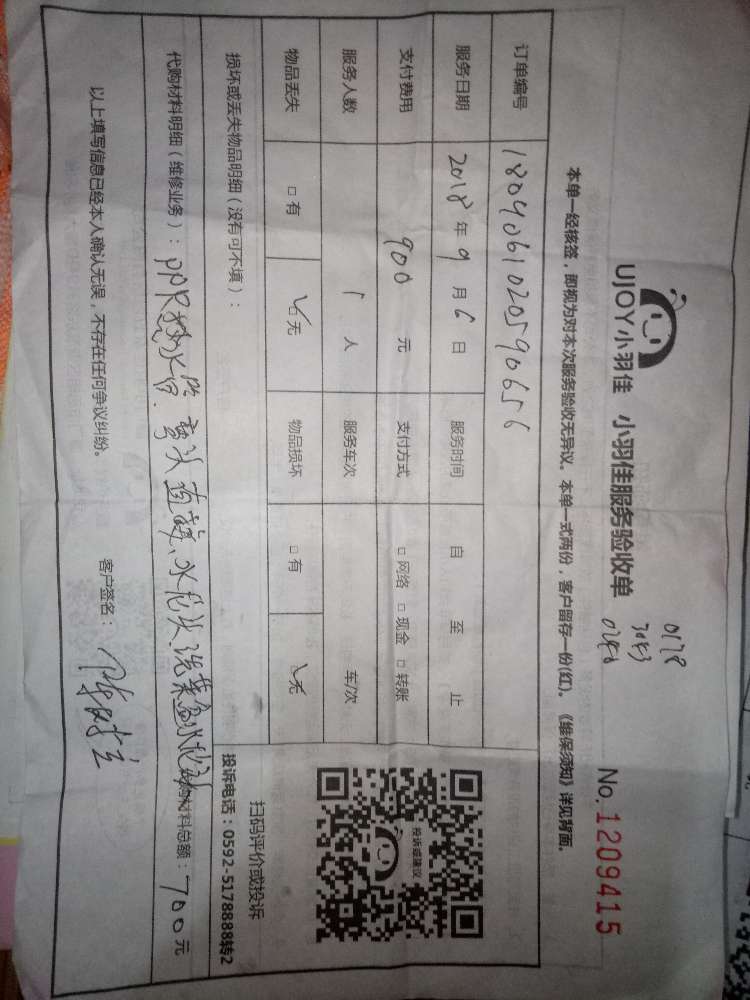 0178
3043
0248
UJOY小羽佳 小羽佳服务验收单 No. 1209415
本单一经核签，即视为对本次服务验收无异议。本单一式两份，客户留存一份(红)。《维保须知》详见背面。
订单编号 1809061020590656
服务日期 2018 年 9 月 6 日 服务时间 自 至 止
支付费用 900 元 支付方式 □ 网络 □ 现金 □ 转账
服务人数 1 人 服务车次 车/次
物品丢失 □ 有 ☑ 无 物品损坏 □ 有 ☑ 无
投诉或建议
扫码评价或投诉
投诉电话：0592-5178888转2
损坏或丢失物品明细（没有可不填）：
代购材料明细（维修业务）：PPR热水管. 弯头直接、水龙头 洗菜盆水龙头 购材料总额：700 元
以上填写信息已经本人确认无误，不存在任何争议纠纷。 客户签名：